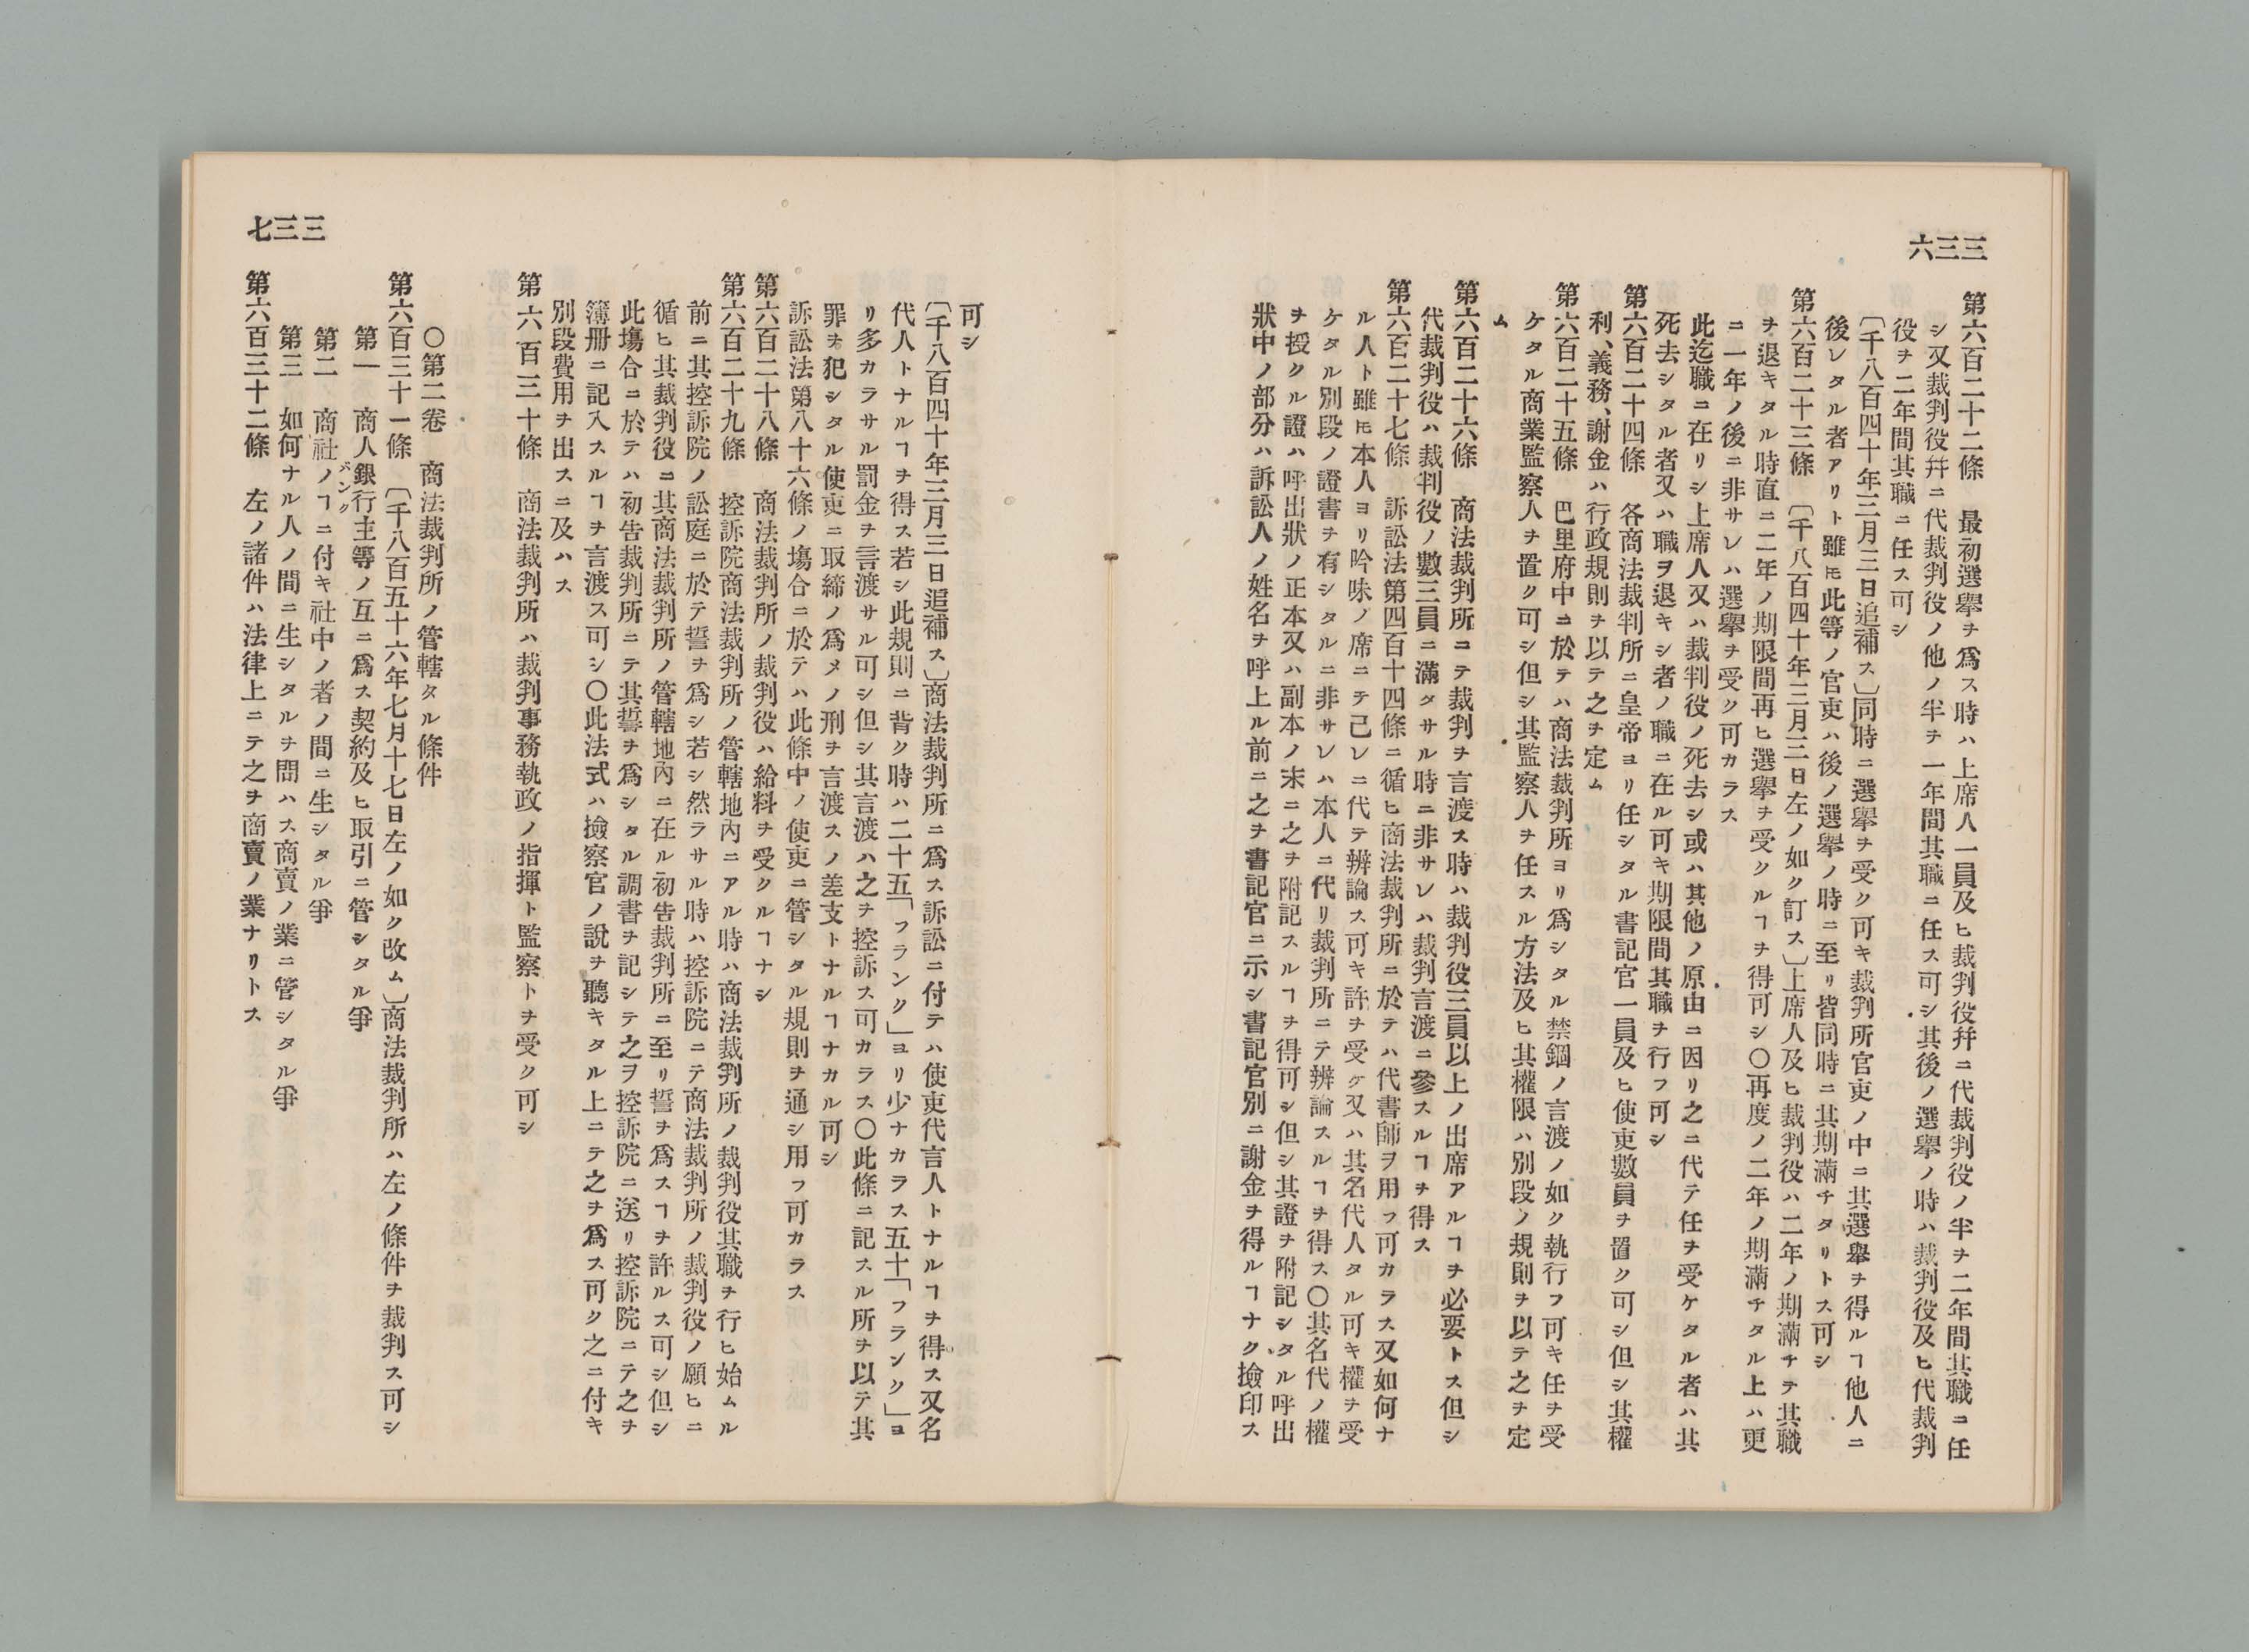 三三六
第六百二十二條　最初選擧ヲ爲ス時ハ上席人一員及ヒ裁判役幷ニ代裁判役ノ半ヲ二年間其職ニ任
シ又裁判役幷ニ代裁判役ノ他ノ半ヲ一年間其職ニ任ス可シ其後ノ選擧ノ時ハ裁判役及ヒ代裁判
役ヲ二年間其職ニ任ス可シ
〔千八百四十年三月三日追補ス〕同時ニ選擧ヲ受ク可キ裁判所官吏ノ中ニ其選擧ヲ得ルヿ他人ニ
後レタル者アリト雖𪜈此等ノ官吏ハ後ノ選擧ノ時ニ至リ皆同時ニ其期滿チタリトス可シ
第六百二十三條　〔千八百四十年三月三日左ノ如ク訂ス〕上席人及ヒ裁判役ハ二年ノ期滿チテ其職
ヲ退キタル時直ニ二年ノ期限間再ヒ選擧ヲ受クルヿヲ得可シ〇再度ノ二年ノ期滿チタル上ハ更
ニ一年ノ後ニ非サレハ選擧ヲ受ク可カラス
此迄職ニ在リシ上席人又ハ裁判役ノ死去シ或ハ其他ノ原由ニ因リ之ニ代テ任ヲ受ケタル者ハ其
死去シタル者又ハ職ヲ退キシ者ノ職ニ在ル可キ期限間其職ヲ行フ可シ
第六百二十四條　各商法裁判所ニ皇帝ヨリ任シタル書記官一員及ヒ使吏數員ヲ置ク可シ但シ其權
利、義務、謝金ハ行政規則ヲ以テ之ヲ定ム
第六百二十五條　巴里府中ニ於テハ商法裁判所ヨリ爲シタル禁錮ノ言渡ノ如ク執行フ可キ任ヲ受
ケタル商業監察人ヲ置ク可シ但シ其監察人ヲ任スル方法及ヒ其權限ハ別段ノ規則ヲ以テ之ヲ定
ム
第六百二十六條　商法裁判所ニテ裁判ヲ言渡ス時ハ裁判役三員以上ノ出席アルヿヲ必要トス但シ
代裁判役ハ裁判役ノ數三員ニ滿タサル時ニ非サレハ裁判言渡ニ參スルヿヲ得ス
第六百二十七條　訴訟法第四百十四條ニ循ヒ商法裁判所ニ於テハ代書師ヲ用フ可カラス又如何ナ
ル人ト雖𪜈本人ヨリ吟味ノ席ニテ己レニ代テ辨論ス可キ許ヲ受ケ又ハ其名代人タル可キ權ヲ受
ケタル別段ノ證書ヲ有シタルニ非サレハ本人ニ代リ裁判所ニテ辨論スルヿヲ得ス〇其名代ノ權
ヲ授クル證ハ呼出狀ノ正本又ハ副本ノ末ニ之ヲ附記スルヿヲ得可シ但シ其證ヲ附記シタル呼出
狀中ノ部分ハ訴訟人ノ姓名ヲ呼上ル前ニ之ヲ書記官ニ示シ書記官別ニ謝金ヲ得ルヿナク撿印ス
三三七
可シ
〔千八百四十年三月三日追補ス〕商法裁判所ニ爲ス訴訟ニ付テハ使吏代言人トナルヿヲ得ス又名
代人トナルヿヲ得ス若シ此規則ニ背ク時ハ二十五「フランク」ヨリ少ナカラス五十「フランク」ヨ
リ多カラサル罰金ヲ言渡サル可シ但シ其言渡ハ之ヲ控訴ス可カラス〇此條ニ記スル所ヲ以テ其
罪ヲ犯シタル使吏ニ取締ノ爲メノ刑ヲ言渡スノ差支トナルヿナカル可シ
訴訟法第八十六條ノ塲合ニ於テハ此條中ノ使吏ニ管シタル規則ヲ通シ用フ可カラス
第六百二十八條　商法裁判所ノ裁判役ハ給料ヲ受クルヿナシ
第六百二十九條　控訴院商法裁判所ノ管轄地內ニアル時ハ商法裁判所ノ裁判役其職ヲ行ヒ始ムル
前ニ其控訴院ノ訟庭ニ於テ誓ヲ爲シ若シ然ラサル時ハ控訴院ニテ商法裁判所ノ裁判役ノ願ヒニ
循ヒ其裁判役ニ其商法裁判所ノ管轄地內ニ在ル初告裁判所ニ至リ誓ヲ爲スヿヲ許ルス可シ但シ
此塲合ニ於テハ初告裁判所ニテ其誓ヲ爲シタル調書ヲ記シテ之ヲ控訴院ニ送リ控訴院ニテ之ヲ
簿册ニ記入スルヿヲ言渡ス可シ〇此法式ハ撿察官ノ說ヲ聽キタル上ニテ之ヲ爲ス可ク之ニ付キ
別段費用ヲ出スニ及ハス
第六百三十條　商法裁判所ハ裁判事務執政ノ指揮ト監察トヲ受ク可シ
〇第二卷　商法裁判所ノ管轄タル條件
第六百三十一條　〔千八百五十六年七月十七日左ノ如ク改ム〕商法裁判所ハ左ノ條件ヲ裁判ス可シ
第一　商人銀行主等ノ互ニ爲ス契約及ヒ取引ニ管シタル爭
バンク
第二　商社ノヿニ付キ社中ノ者ノ間ニ生シタル爭
第三　如何ナル人ノ間ニ生シタルヲ問ハス商賣ノ業ニ管シタル爭
第六百三十二條　左ノ諸件ハ法律上ニテ之ヲ商賣ノ業ナリトス